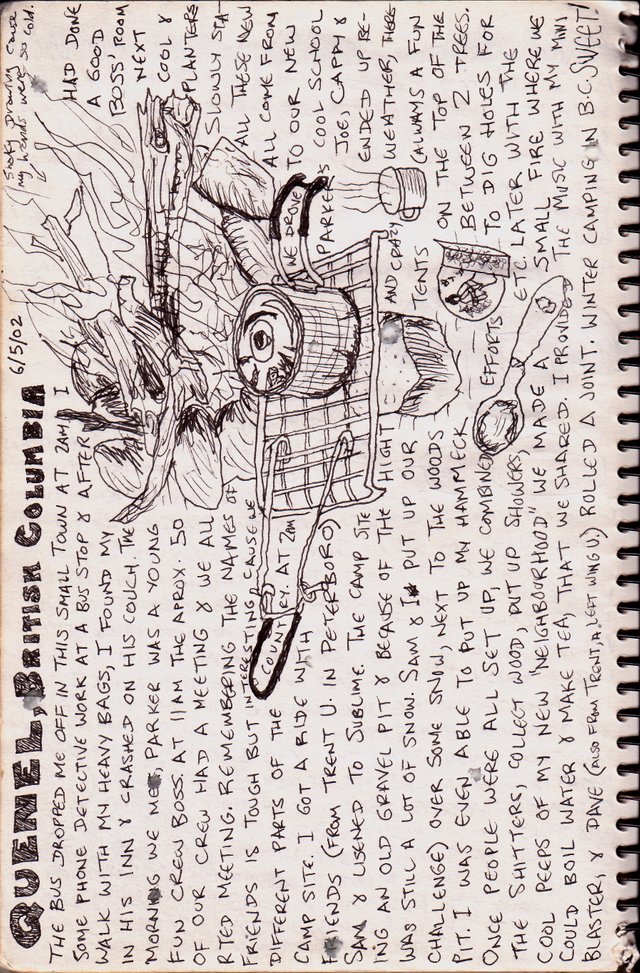 QUENEL, BRITISH COLUMBIA 6/5/02
Shaky drawing cause
my hands were so cold.
THE BUS DROPPED ME OFF IN THIS SMALL TOWN AT 2AM & I HAD DONE
SOME PHONE DETECTIVE WORK AT A BUS STOP & AFTER A GOOD
WALK WITH MY HEAVY BAGS, I FOUND MY BOSS' ROOM
IN HIS INN & CRASHED ON HIS COUCH. THE NEXT
MORNING WE MET. PARKER WAS A YOUNG COOL &
FUN CREW BOSS. AT 11AM THE APROX. 50 PLANTERS
OF OUR CREW HAD A MEETING & WE ALL SLOWLY STA-
RTED MEETING. REMEMBERING THE NAMES OF ALL THESE NEW
FRIENDS IS TOUGH BUT INTERESTING CAUSE WE ALL COME FROM
DIFFERENT PARTS OF THE COUNTRY. AT 2PM WE DROVE TO OUR NEW
CAMP SITE. I GOT A RIDE WITH PARKERS COOL SCHOOL
FRIENDS (FROM TRENT U. IN PETERBORO) JOE, CAPPY &
SAM & LISENED TO SUBLIME. THE CAMP SITE ENDED UP BE-
ING AN OLD GRAVEL PIT & BECAUSE OF THE HIGHT AND CRAZY WEATHER, THERE
WAS STILL A LOT OF SNOW. SAM & I PUT UP OUR TENTS (ALWAYS A FUN
CHALLENGE) OVER SOME SNOW, NEXT TO THE WOODS ON THE TOP OF THE
PIT. I WAS EVEN ABLE TO PUT UP MY HAMMECK BETWEEN 2 TREES.
ONCE PEOPLE WERE ALL SET UP, WE COMBINED EFFORTS TO DIG HOLES FOR
THE SHITTERS, COLLECT WOOD, PUT UP SHOWERS, ETC. LATER WITH THE
COOL PEEPS OF MY NEW "NEIGHBOURHOOD" WE MADE A SMALL FIRE WHERE WE
COULD BOIL WATER & MAKE TEA, THAT WE SHARED. I PROVIDED THE MUSIC WITH MY MINI
BLASTER, & DAVE (ALSO FROM TRENT, A LEFT WING U) ROLLED A JOINT. WINTER CAMPING IN B.C. SWEET!